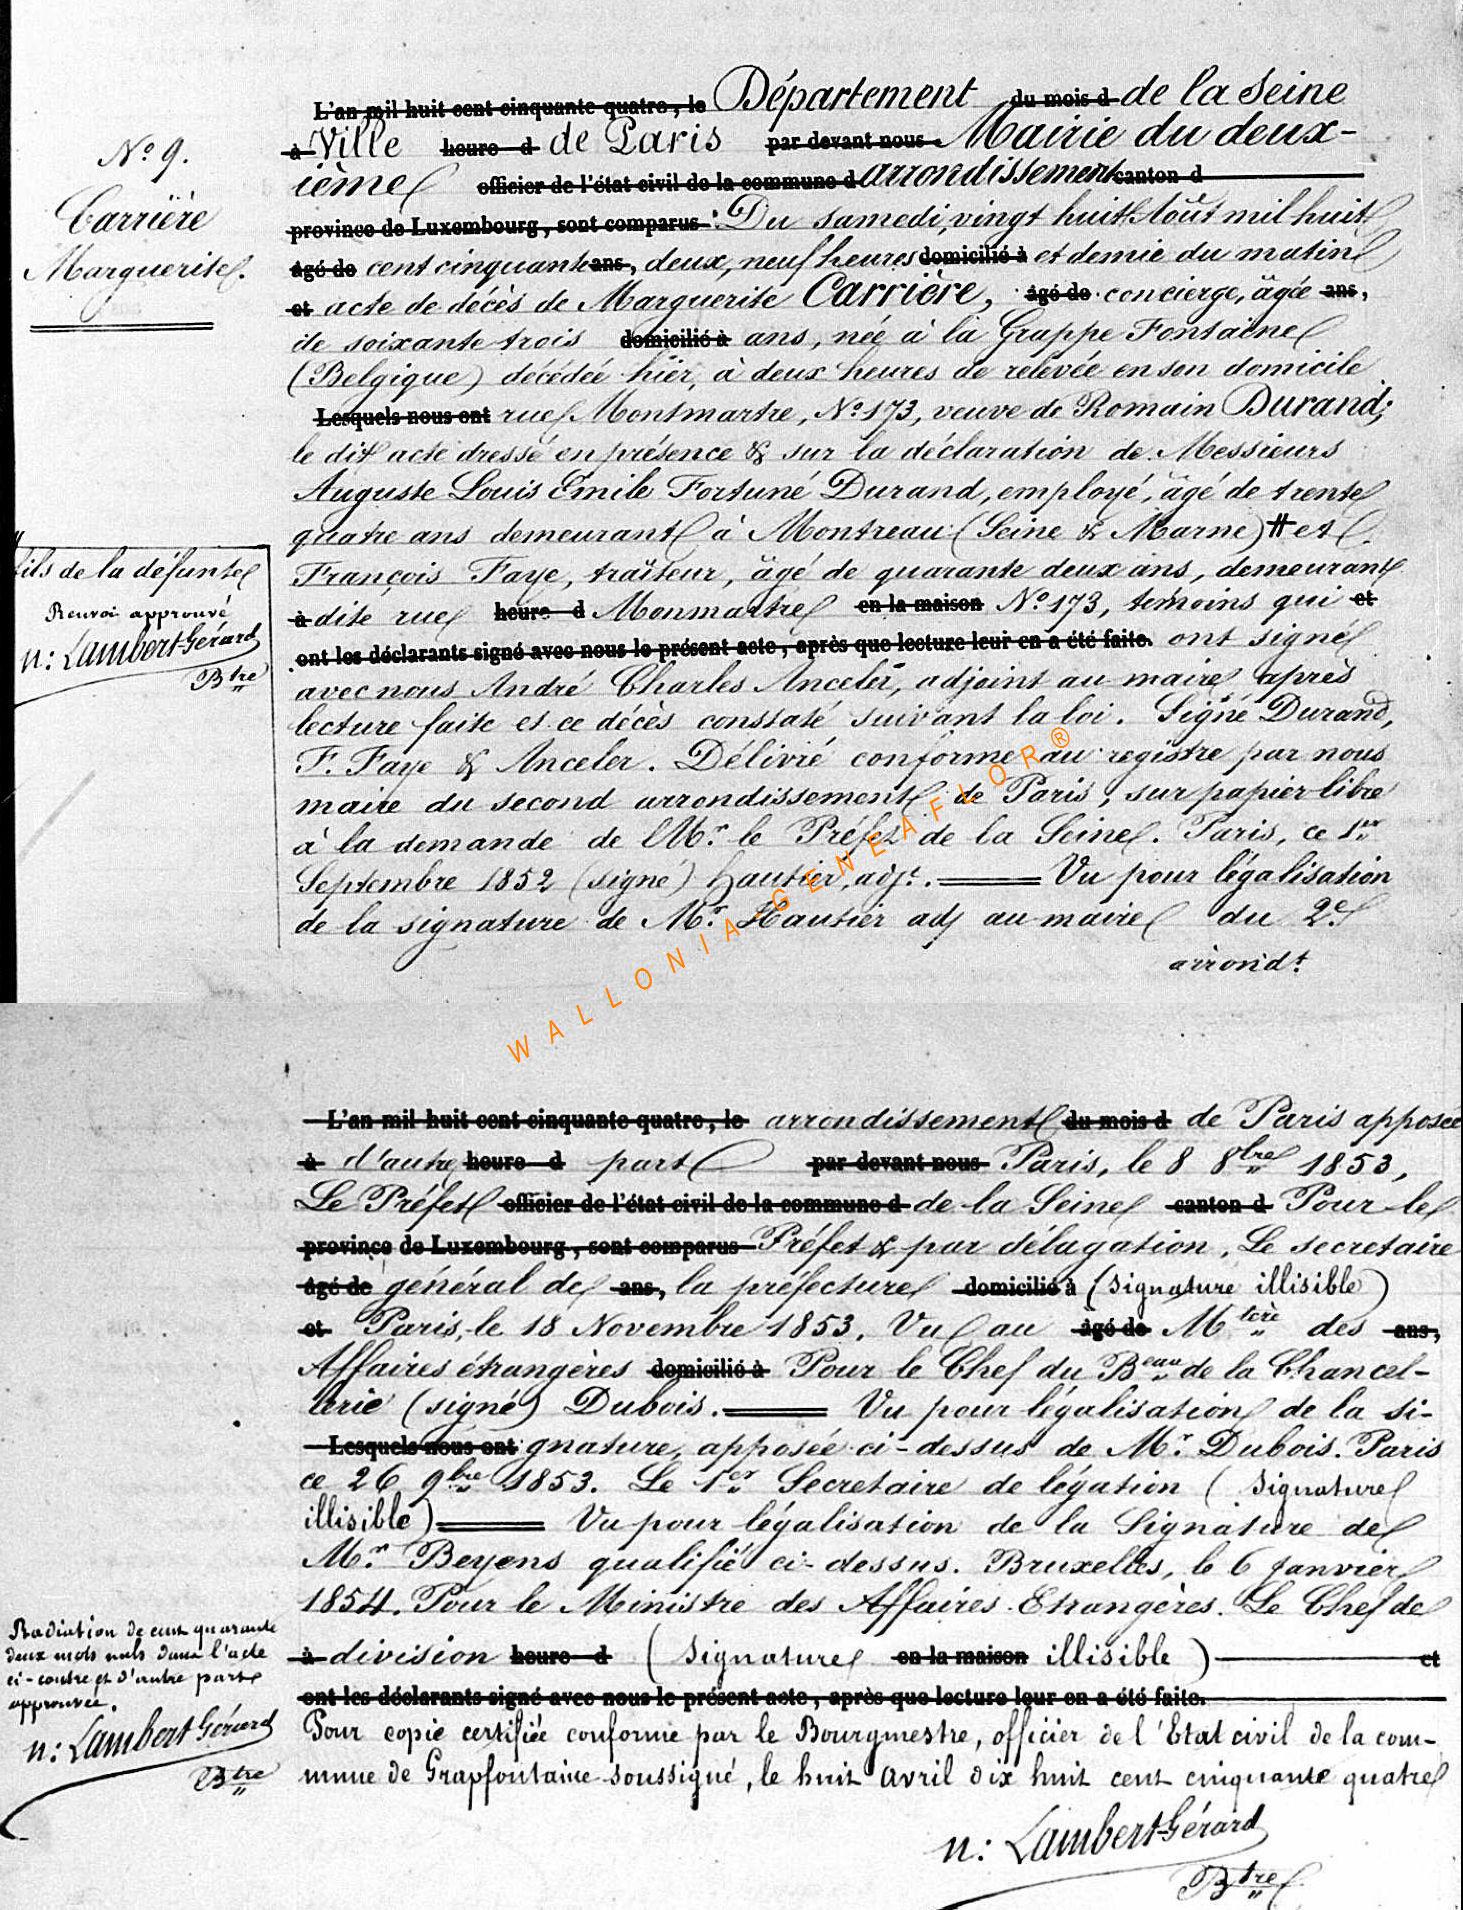 N.º 9.
Carrière
Marguerite.
L'an mil huit cent cinquante quatre, le Département du mois d de la Seine
à Ville heure d de Paris par devant nous Mairie du deux-
ième officier de l'état civil de la commune d arrondissement canton d
province de Luxembourg, sont comparus Du samedi, vingt huit Août mil huit
âgé de cent cinquante ans, deux, neuf heures domicilié à et demie du matin
et acte de décès de Marguerite Carrière, âgé de concierge, âgée ans,
de soixante trois domicilié à ans, née à la Grappe Fontaine
(Belgique) décédée hier, à deux heures de relevée en son domicile
Lesquels nous ont rue Montmartre, N.º 173, veuve de Romain Durand;
le dit acte dressé en présence & sur la déclaration de Messieurs
Auguste Louis Émile Fortuné Durand, employé, âgé de trente
quatre ans demeurant à Montreau (Seine & Marne) # et
François Faye, traiteur, âgé de quarante deux ans, demeurant
à dite rue heure d Monmartre en la maison N.º 173, témoins qui et
ont les déclarants signé avec nous le présent acte, après que lecture leur en a été faite. ont signé
avec nous André Charles Anceler, adjoint au maire après
lecture faite et ce décès constaté suivant la loi. Signé Durand,
F. Faye & Anceler. Délivré conforme au registre par nous
maire du second arrondissement de Paris, sur papier libre
à la demande de Mr. le Préfet de la Seine. Paris, ce 1er
Septembre 1852 (signé) Hautier, adjt. Vu pour légalisation
de la signature de Mr. Hautier adj au maire du 2e
arrondt.
fils de la défunte
Renvoi approuvé
n: Lambert-Gérard
Btre
WALLONIA-GENEAFLOR®
L'an mil huit cent cinquante quatre, le arrondissement du mois d de Paris apposée
à d'autre heure d part par devant nous Paris, le 8 8bre 1853,
Le Préfet officier de l'état civil de la commune d de la Seine canton d Pour le
province de Luxembourg, sont comparus Préfet & par délagation, Le secretaire
âgé de général de ans, la préfecture domicilié à (Signature illisible)
et Paris, le 18 Novembre 1853. Vu au âgé de Mtère des ans,
Affaires étrangères domicilié à Pour le Chef du Beau de la Chancel-
lerie (signé) Dubois. Vu pour légalisation de la si-
Lesquels nous ont gnature, apposée ci-dessus de Mr. Dubois. Paris
ce 26 9bre 1853. Le 1er Secretaire de légation (Signature
illisible) Vu pour légalisation de la Signature de
Mr. Beyens qualifié ci-dessus. Bruxelles, le 6 Janvier
1854. Pour le Ministre des Affaires Etrangères. Le Chef de
à division heure d (Signature en la maison illisible) et
ont les déclarants signé avec nous le présent acte, après que lecture leur en a été faite.
Pour copie certifiée conforme par le Bourgmestre, officier de l'Etat civil de la com-
mune de Grapfontaine soussigné, le huit avril dix huit cent cinquante quatre
n: Lambert-Gérard
Btre
Radiation de cent quarante
deux mots nuls dans l'acte
ci-contre et d'autre part
approuvée.
n: Lambert Gérard
Btre